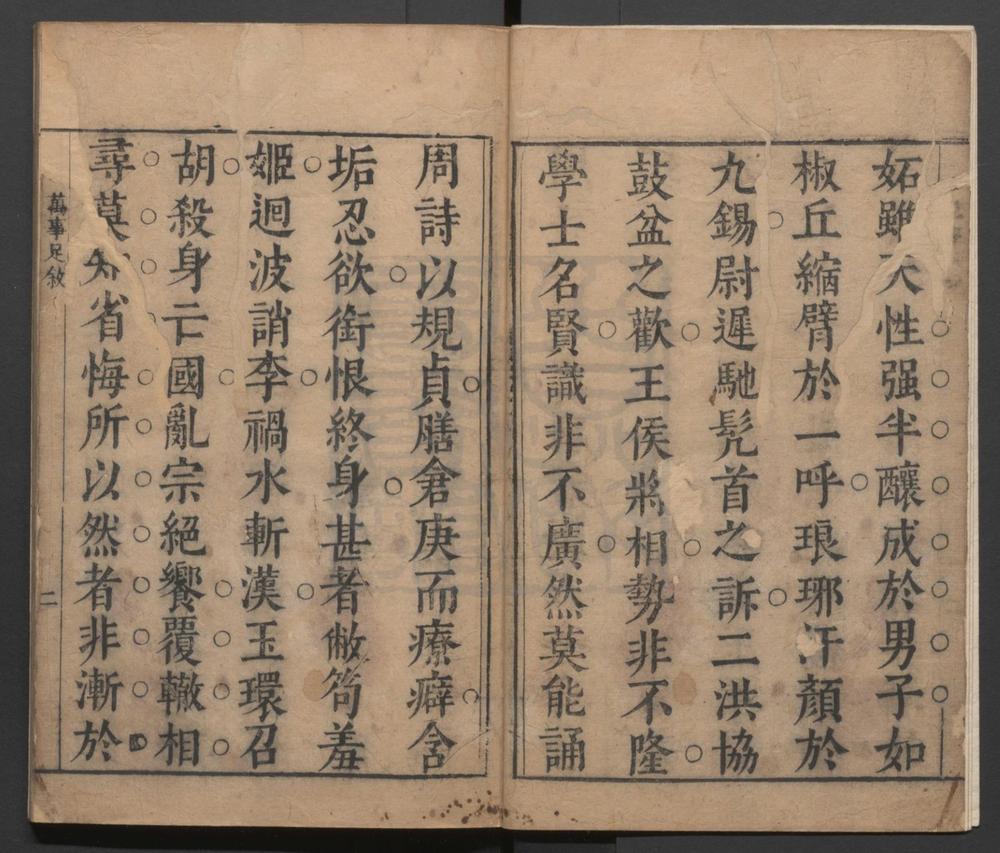 妬雖天性强半釀成於男子如
椒丘縮臂於一呼琅琊汗顏於
九錫尉遲馳髠首之訴二洪協
鼓盆之歡王侯將相勢非不隆
學士名賢識非不廣然莫能誦
周詩以規貞膳倉庚而療癖含
垢忍欲銜恨終身甚者敝笱羞
姬迴波誚李禍水斬漢玉環召
胡殺身亡國亂宗絕饗覆轍相
尋莫知省悔所以然者非漸於
萬事足敘
二